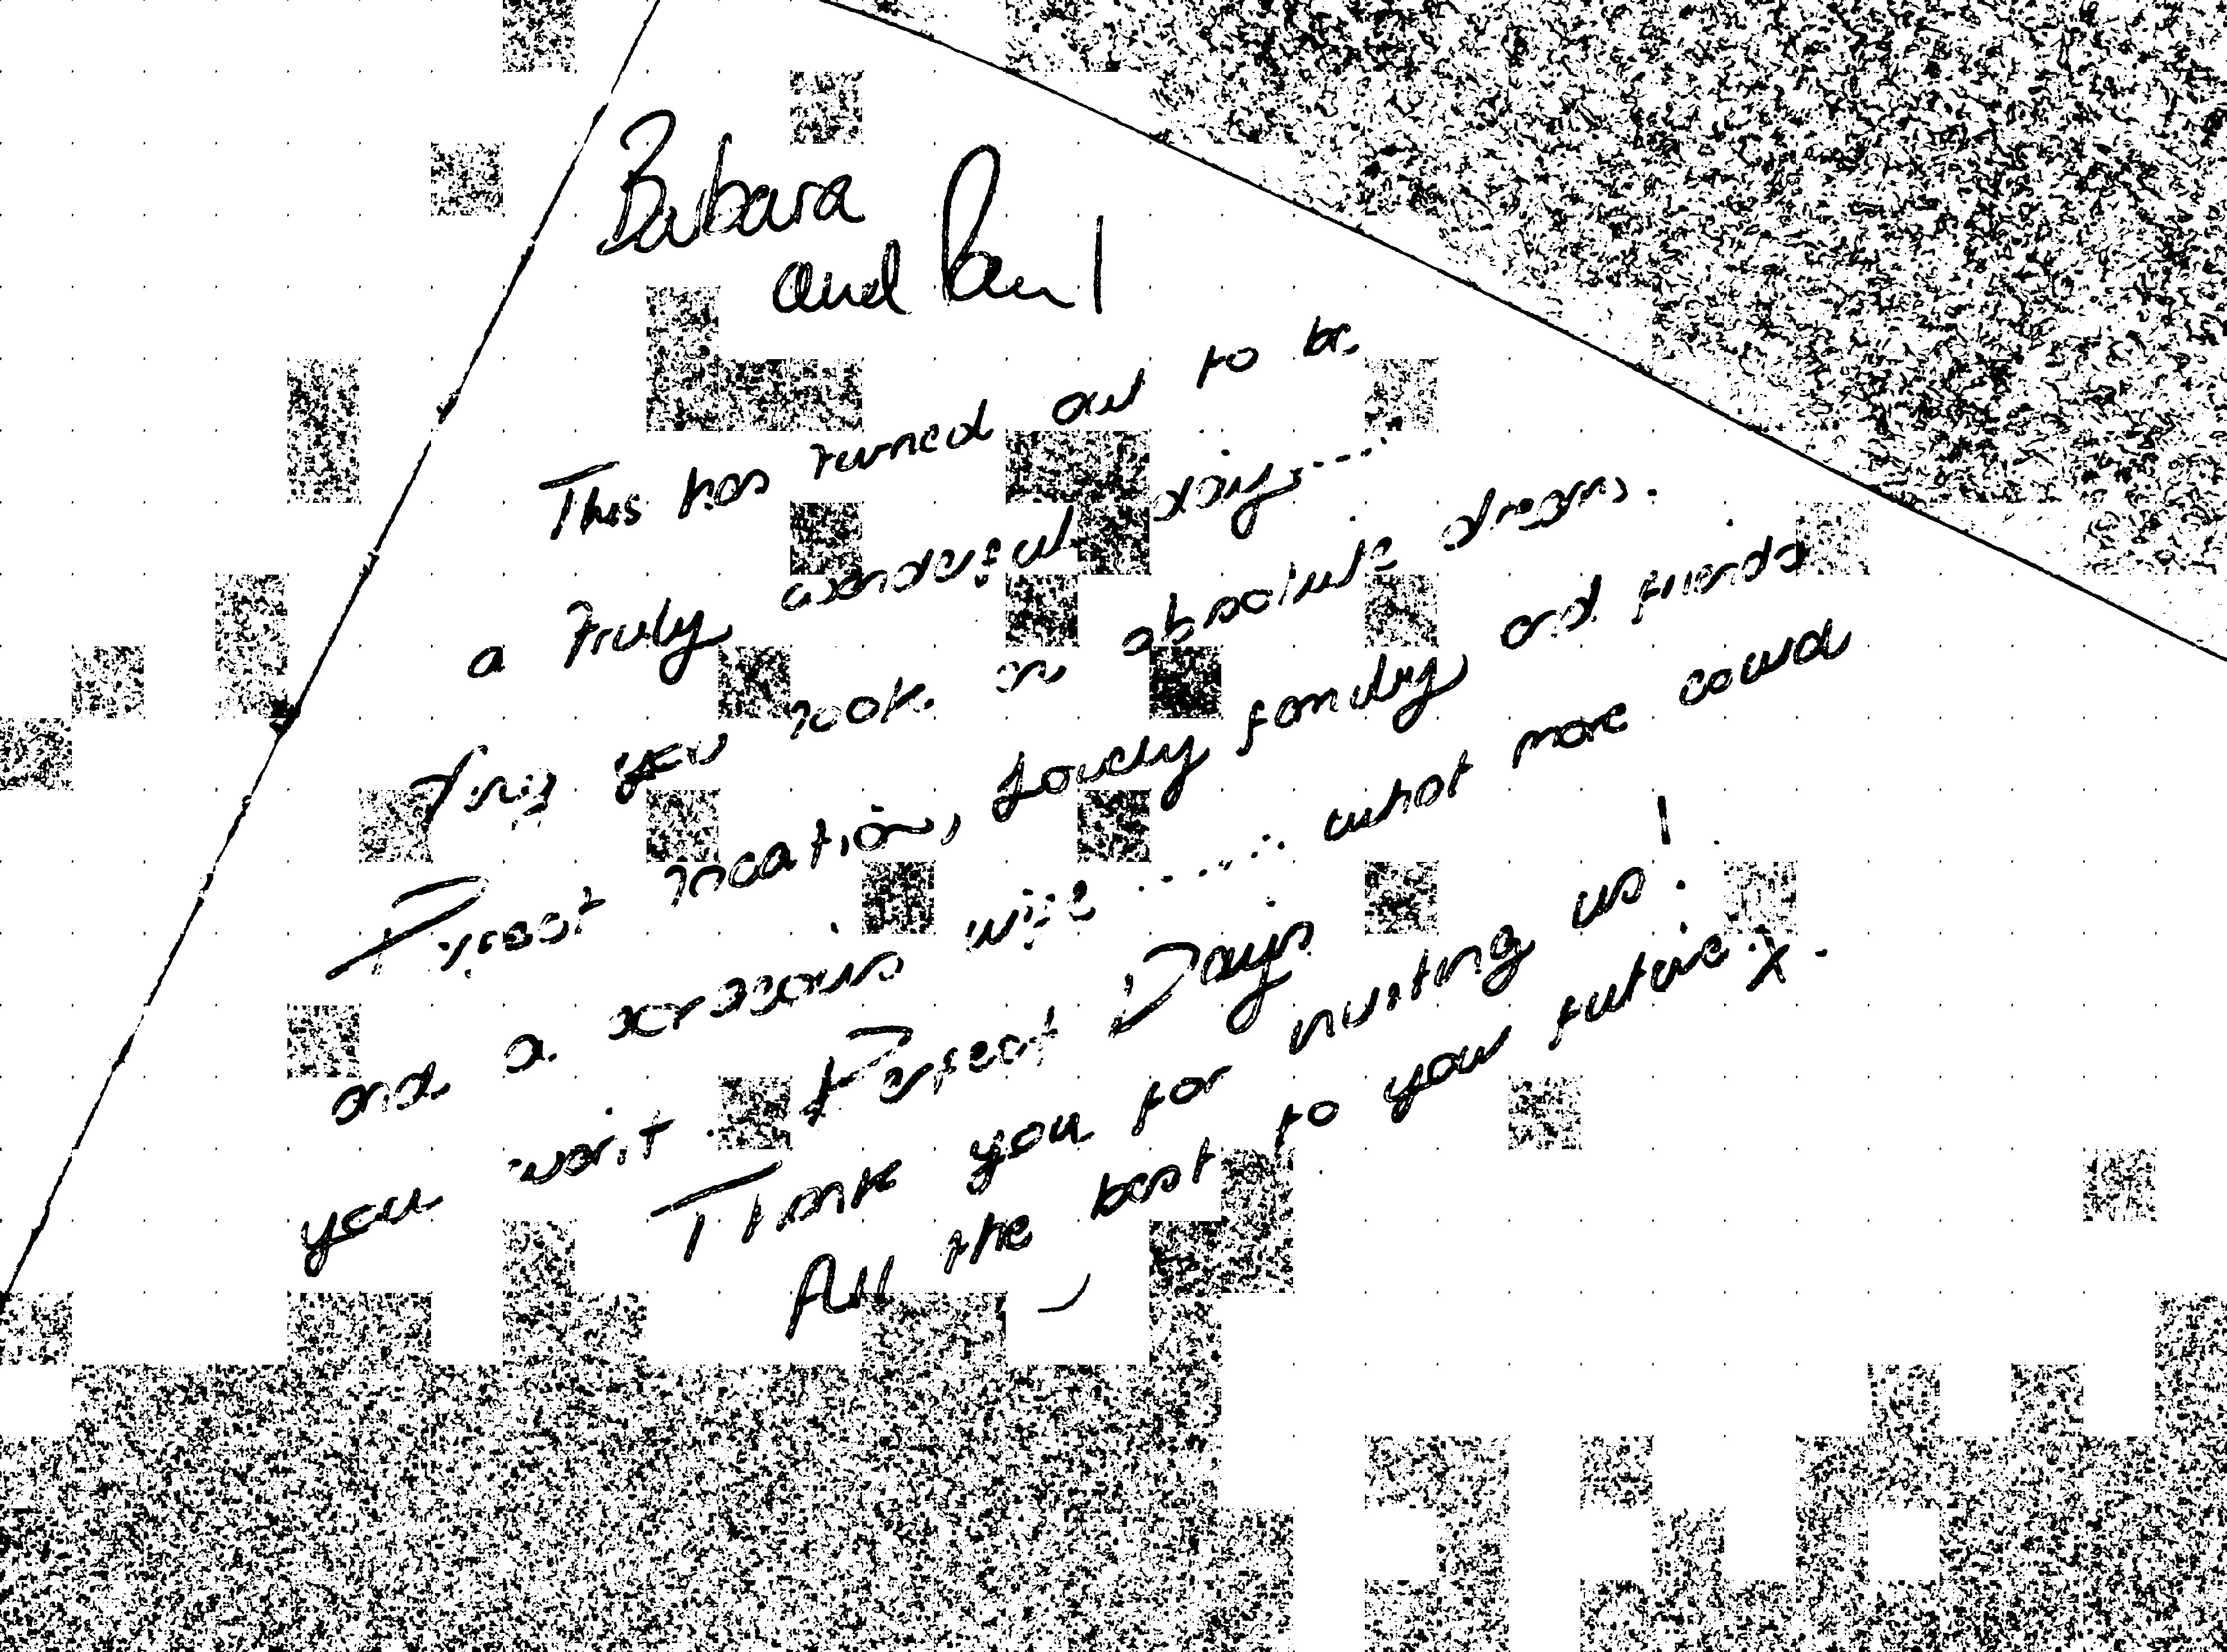 Barbara
and Paul
This has turned out to be
a truly wonderful day......
you look an absolute dream.
Great location, lovely family and friends
and a gorgeous wife ....... what more could
you want. Perfect Days
Thank you for inviting us!
All the best to your future x.